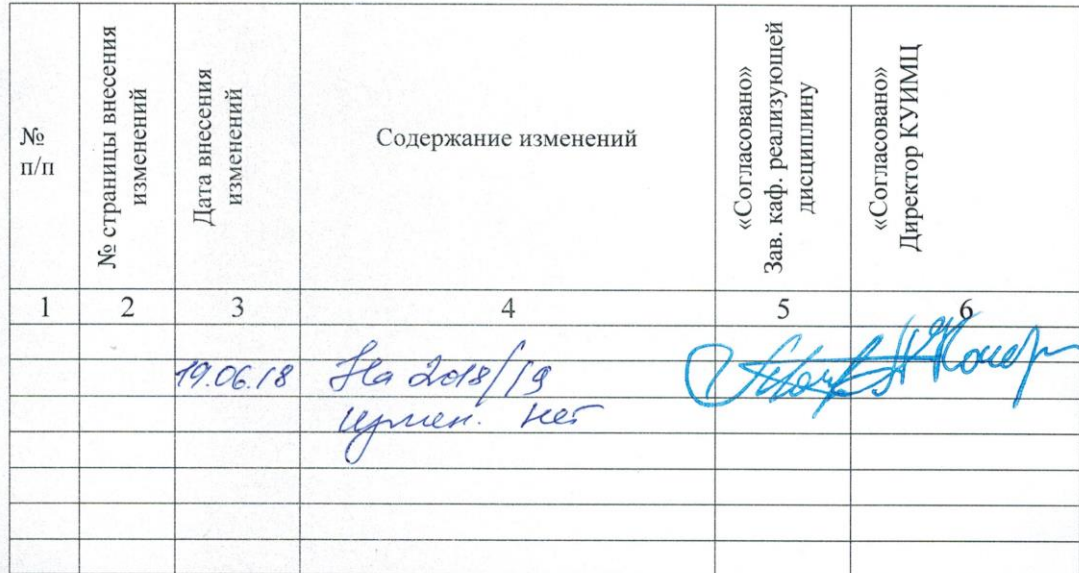 №
п/п
№ страницы внесения
изменений
Дата внесения
изменений
Содержание изменений
«Согласовано»
Зав. каф. реализующей
дисциплину
«Согласовано»
Директор КУИМЦ
1 2 3 4 5 6
19.06.18 На 2018/19
измен. нет